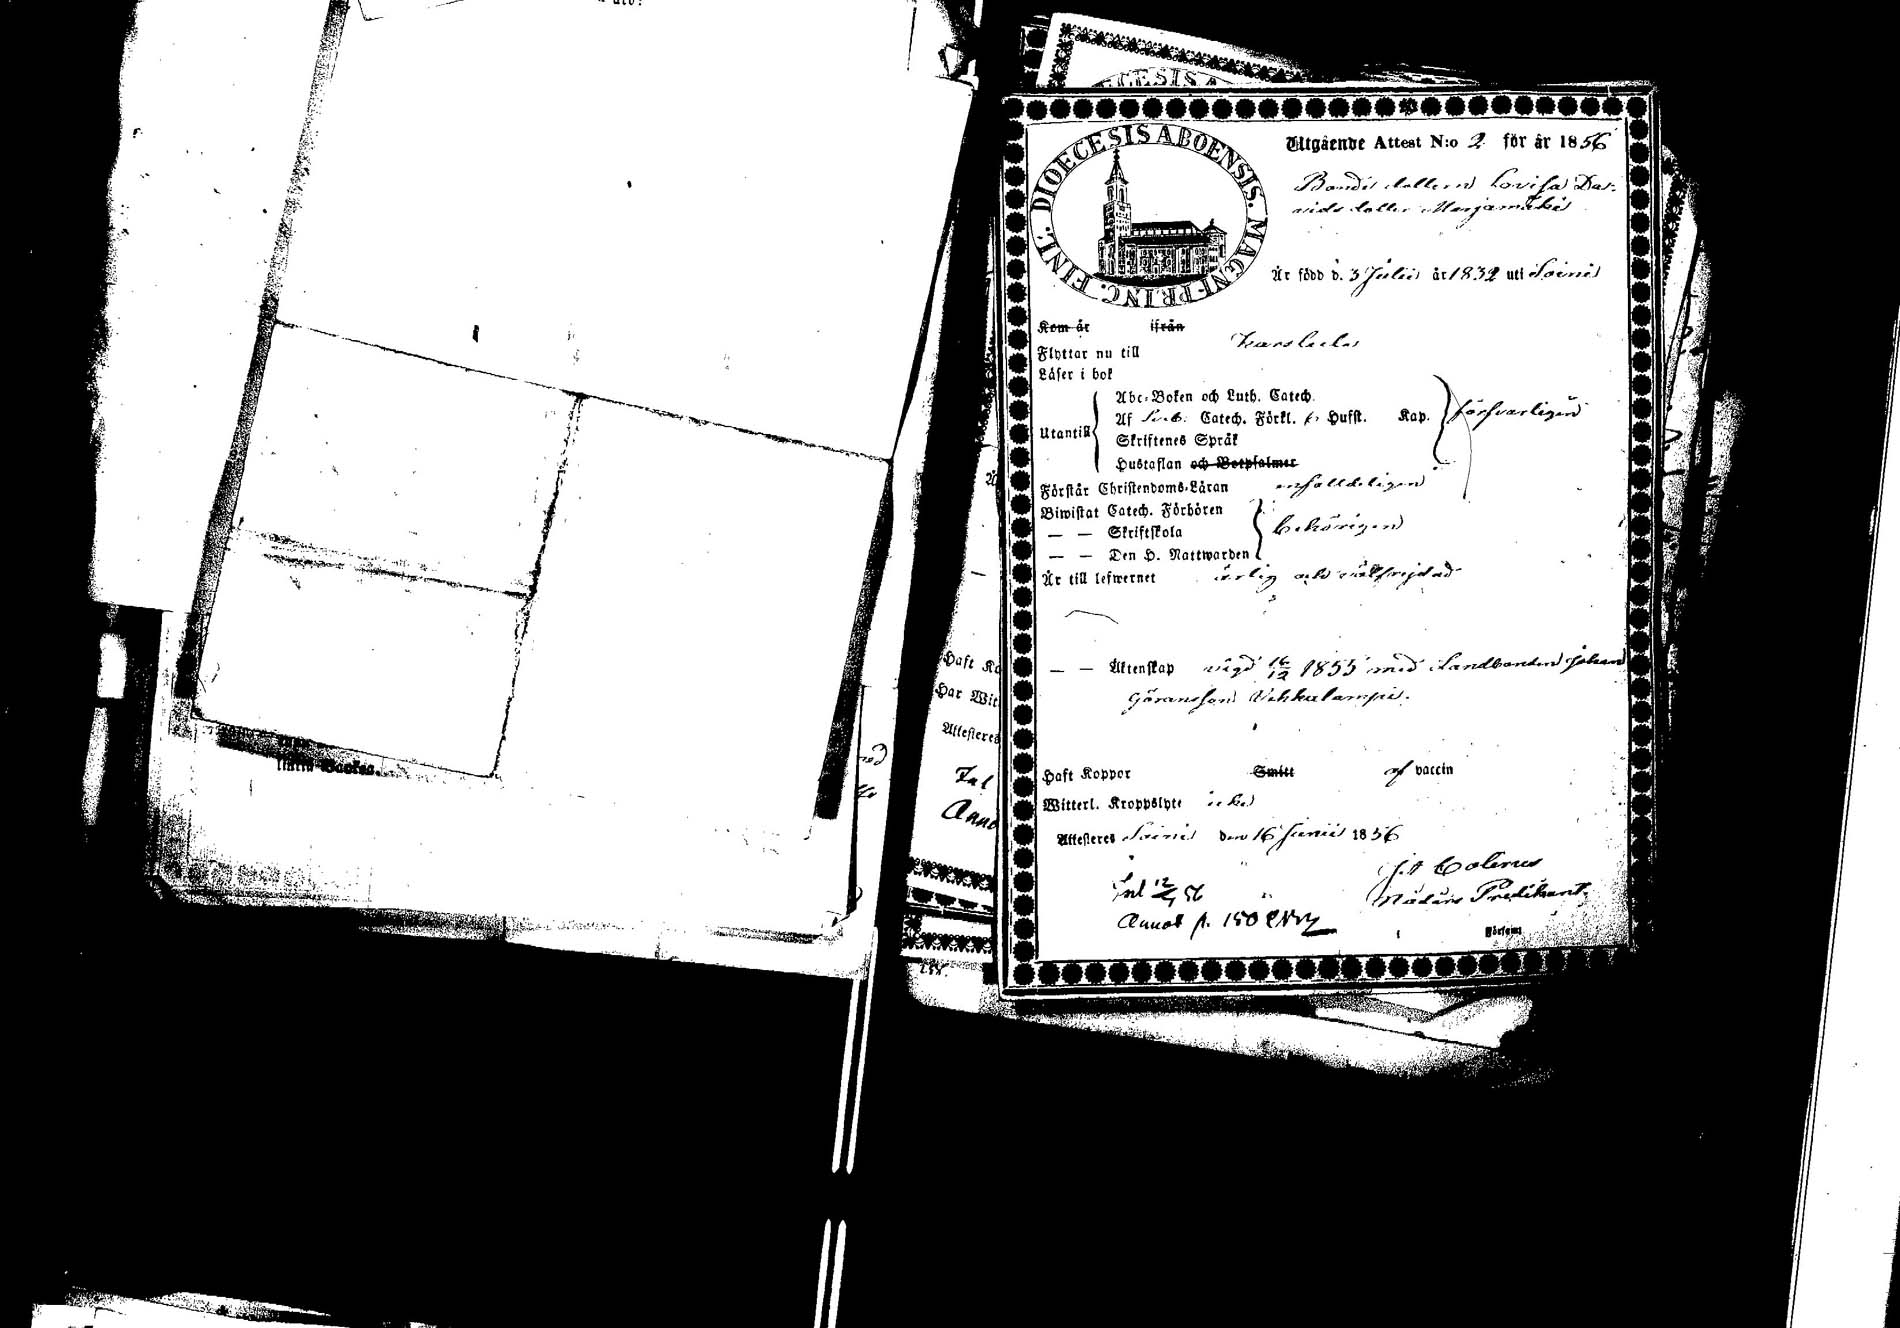 DIOECESIS A
DIOECESIS ABOENSIS. MAGNI PRINC. FINL.
Utgående Attest N:o 2 för år 1856
Bonde dottern Lovisa Da-
vids dotter Merjamäki
Är född d. 3 Julii år 1832 uti Soini
Kom år ifrån
Flyttar nu till Karstula
Läser i bok
Utantill
Abc-Boken och Luth. Catech.
Af Sveb. Catech. Förkl. Husft. Kap. försvarligen
Skriftenes Språk
Hustaflan och Botpsalmer
Förstår Christendoms-Läran enfaldeligen
Biwistat Catech. Förhören
— — Skriftskola behörigen
— — Den H. Nattwarden
Är till lefwernet ärlig och välfrejdad
— — Äktenskap vigd 16/12 1855 med Landbonden Johan
Göransson Vehkalampi.
Haft Koppor Smitt af vaccin
Witterl. Kroppslyte icke
Attesteres Soini den 16 Junii 1856
Colerus
Predikant.
Inl 12/7 56
Annot p. 150
Haft Ko
Har Wit
Attesteres